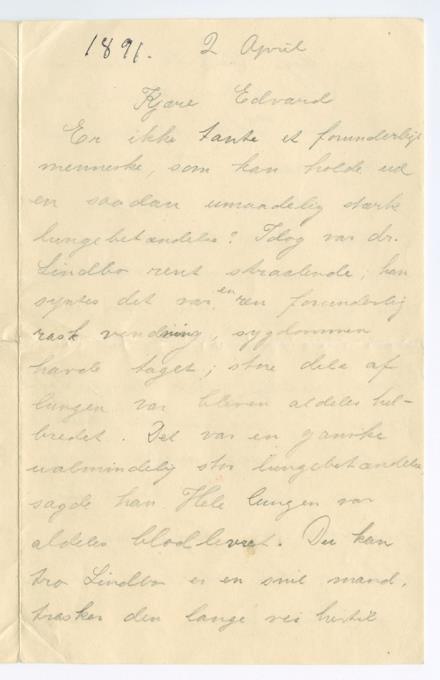 1891. 2 April
Kjære Edvard
Er ikke tante et forunderligt
menneske, som kan holde ud
en saadan umaadelig stærk
lungebetændelse? Idag var dr.
Lindbo rent straalende; han
syntes det var en ren forunderlig
rask vendning, sygdommen
havde taget; store dele af
lungen var bleven aldeles hel-
bredet. Det var en ganske
ualmindelig stor lungebetændelse,
sagde han. Hele lungen var
aldeles blodlevret. Du kan
tro Lindbo er en snil mand,
trasker den lange vei hertil